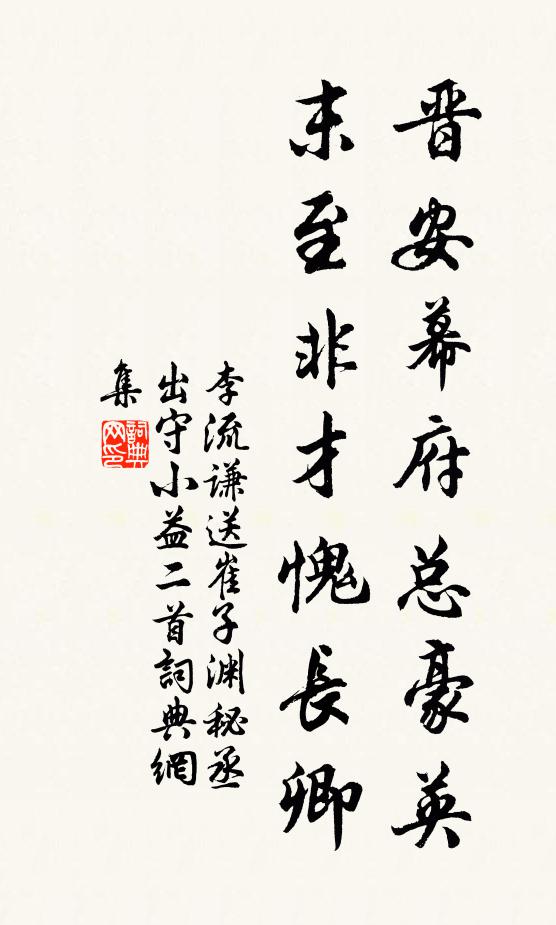 晋安幕府总豪英
末至非才愧長卿
李流謙送崔子渊秘丞
出守小益二首詞典網
集
詞典网印